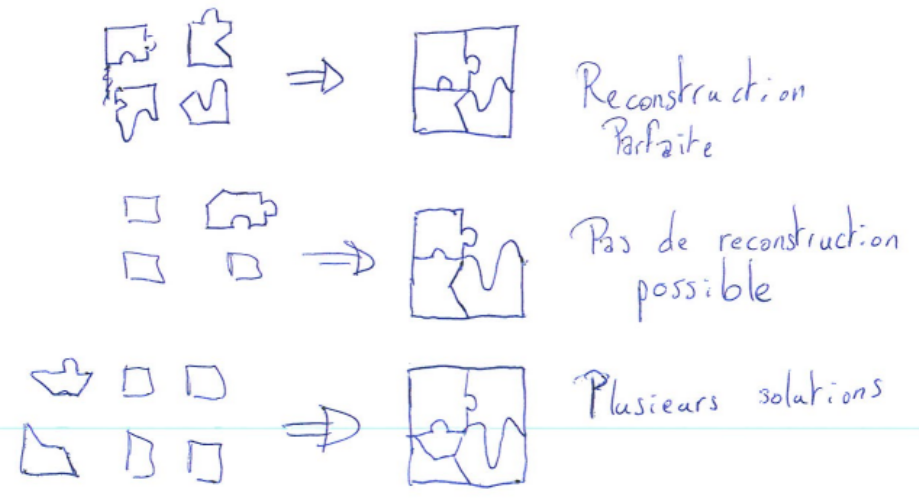 Reconstruction
Parfaite
Pas de reconstruction
possible
Plusieurs solutions